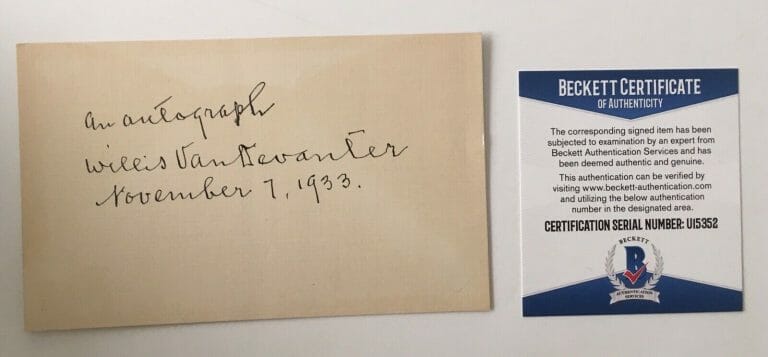 An autograph
Willis VanDevanter
November 7, 1933.
BECKETT CERTIFICATE
OF AUTHENTICITY
The corresponding signed item has been
subjected to examination by an expert from
Beckett Authentication Services and has
been deemed authentic and genuine.
This authentication can be verified by
visiting www.beckett-authentication.com
and utilizing the below authentication
number in the designated area.
CERTIFICATION SERIAL NUMBER: U15352
BECKETT
B
AUTHENTICATION
SERVICES